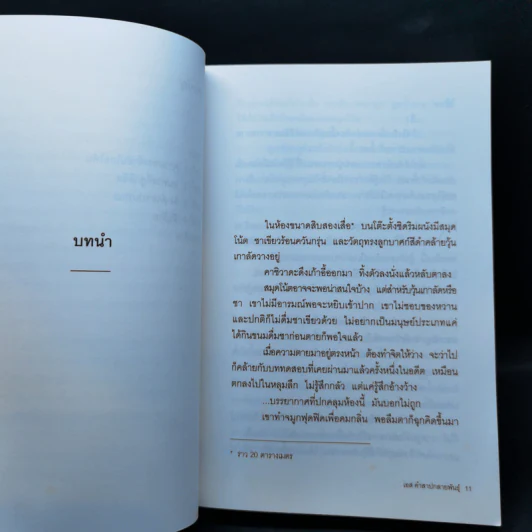 บทนำ
ในห้องขนาดสิบสองเสื่อ* บนโต๊ะตั้งชิดริมผนังมีสมุด
โน้ต ชาเขียวร้อนควันกรุ่น และวัตถุทรงลูกบาศก์สีดำคล้ายวุ้น
เกาลัดวางอยู่
คาชิวาดะดึงเก้าอี้ออกมา ทิ้งตัวลงนั่งแล้วหลับตาลง
สมุดโน้ตอาจจะพอน่าสนใจบ้าง แต่สำหรับวุ้นเกาลัดหรือ
ชา เขาไม่มีอารมณ์พอจะหยิบเข้าปาก เขาไม่ชอบของหวาน
และปกติก็ไม่ดื่มชาเขียวด้วย ไม่อยากเป็นมนุษย์ประเภทแค่
ได้กินขนมดื่มชาก่อนตายก็พอใจแล้ว
เมื่อความตายมาอยู่ตรงหน้า ต้องทำจิตให้ว่าง จะว่าไป
ก็คล้ายกับบททดสอบที่เคยผ่านมาแล้วครั้งหนึ่งในอดีต เหมือน
ตกลงไปในหลุมลึก ไม่รู้สึกกลัว แต่แค่รู้สึกอ้างว้าง
...บรรยากาศที่ปกคลุมห้องนี้ มันบอกไม่ถูก
เขาทำจมูกฟุดฟิดเพื่อดมกลิ่น พอลืมตาก็ฉุกคิดขึ้นมา
* ราว 20 ตารางเมตร
เดส คำสาปกลายพันธุ์ 11